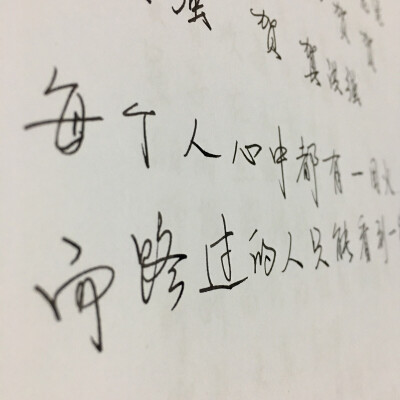 强 贺
每个人心中都有一团火
而路过的人只能看到一